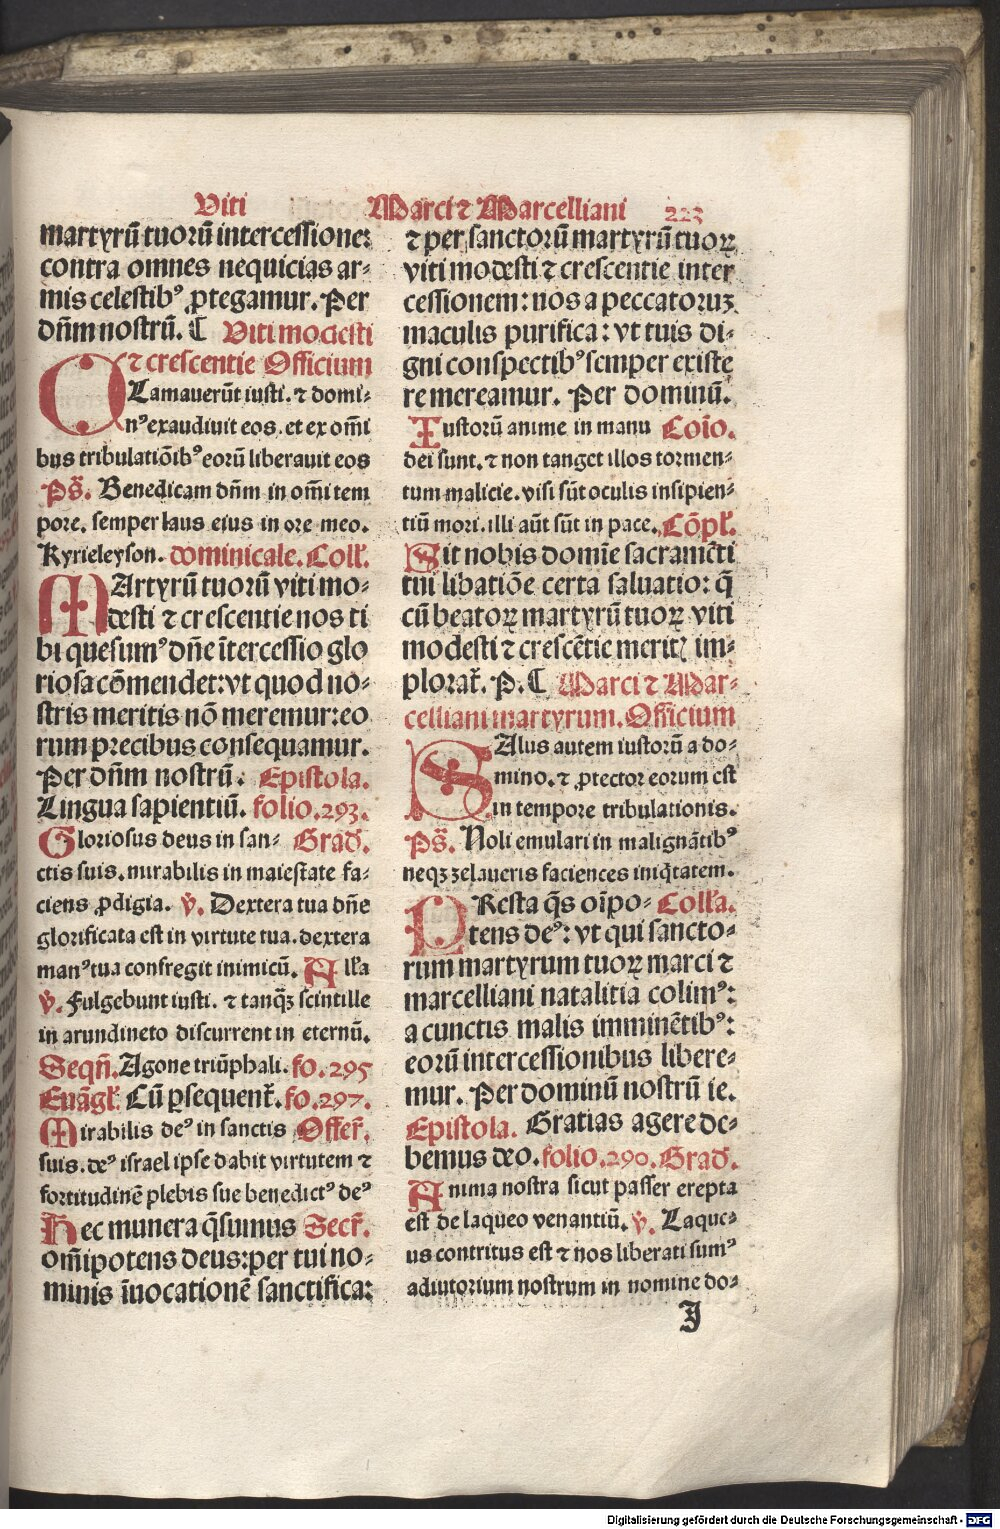 Viti Marci ⁊ Marcelliani 223
martyrū tuorū intercessione:
contra omnes nequicias ar⸗
mis celestibꝰ ꝓtegamur. Per
dn̄m nostrū. ⸿ Viti modesti
⁊ crescentie Officium
CLamauerūt iusti. ⁊ domi⸗
nꝰ exaudiuit eos. et ex om̄i
bus tribulatiōibꝰ eorū liberauit eos
Ps̄. Benedicam dn̄m in om̄i tem
pore. semper laus eius in ore meo.
Kyrieleyson. dominicale. Coll̄.
MArtyrū tuorū viti mo⸗
desti ⁊ crescentie nos ti
bi quesumꝰ dn̄e ītercessio glo
riosa cōmendet: vt quod no⸗
stris meritis nō meremur: eo
rum precibus consequamur.
Per dn̄m nostrū. Epistola.
Lingua sapientiū. folio .293.
Gloriosus deus in san⸗ Grad̄.
ctis suis. mirabilis in maiestate fa⸗
ciens ꝓdigia. v̄. Dextera tua dn̄e
glorificata est in virtute tua. dextera
manꝰ tua confregit inimicū. All̄a
v̄. Fulgebunt iusti. ⁊ tanqꝫ scintille
in arundineto discurrent in eternū.
Seqn̄. Agone triūphali. fo. 295
Euāgl̄. Cū ꝑsequent̄. fo. 297.
Mirabilis deꝰ in sanctis Offer̄.
suis. deꝰ israel ipse dabit virtutem ⁊
fortitudinē plebis sue benedictꝰ deꝰ
Hec munera q̄sumus Secr̄.
om̄ipotens deus: per tui no⸗
minis īuocationē sanctifica:
⁊ per sanctorū martyrū tuoꝝ
viti modesti ⁊ crescentie inter
cessionem: nos a peccatoruꝫ
maculis purifica: vt tuis di⸗
gni conspectibꝰ semper existe
re mereamur. Per dominū.
Iustorū anime in manu Coīo.
dei sunt. ⁊ non tanget illos tormen⸗
tum malicie. visi sūt oculis insipien⸗
tiū mori. illi aūt sūt in pace. Cōpl̄.
Sit nobis domīe sacramēti
tui libatiōe certa saluatio: q̄
cū beatoꝝ martyrū tuoꝝ viti
modesti ⁊ crescētie meritꝭ im⸗
plorat̄. P. ⸿ Marci ⁊ Mar⸗
celliani martyrum. Officium
SAlus autem iustorū a do⸗
mino. ⁊ ꝓtector eorum est
in tempore tribulationis.
Ps̄. Noli emulari in malignātibꝰ
neqꝫ zelaueris faciences iniq̄tatem.
PResta q̄s oīpo⸗ Coll̄a.
tens deꝰ: vt qui sancto⸗
rum martyrum tuoꝝ marci ⁊
marcelliani natalitia colimꝰ:
a cunctis malis imminētibꝰ:
eorū intercessionibus libere⸗
mur. Per dominū nostrū ie.
Epistola. Gratias agere de⸗
bemus deo. folio .290. Grad̄.
Anima nostra sicut passer erepta
est de laqueo venantiū. v̄. Laque⸗
us contritus est ⁊ nos liberati sumꝰ
adiutorium nostrum in nomine do⸗
J
Digitalisierung gefördert durch die Deutsche Forschungsgemeinschaft - DFG